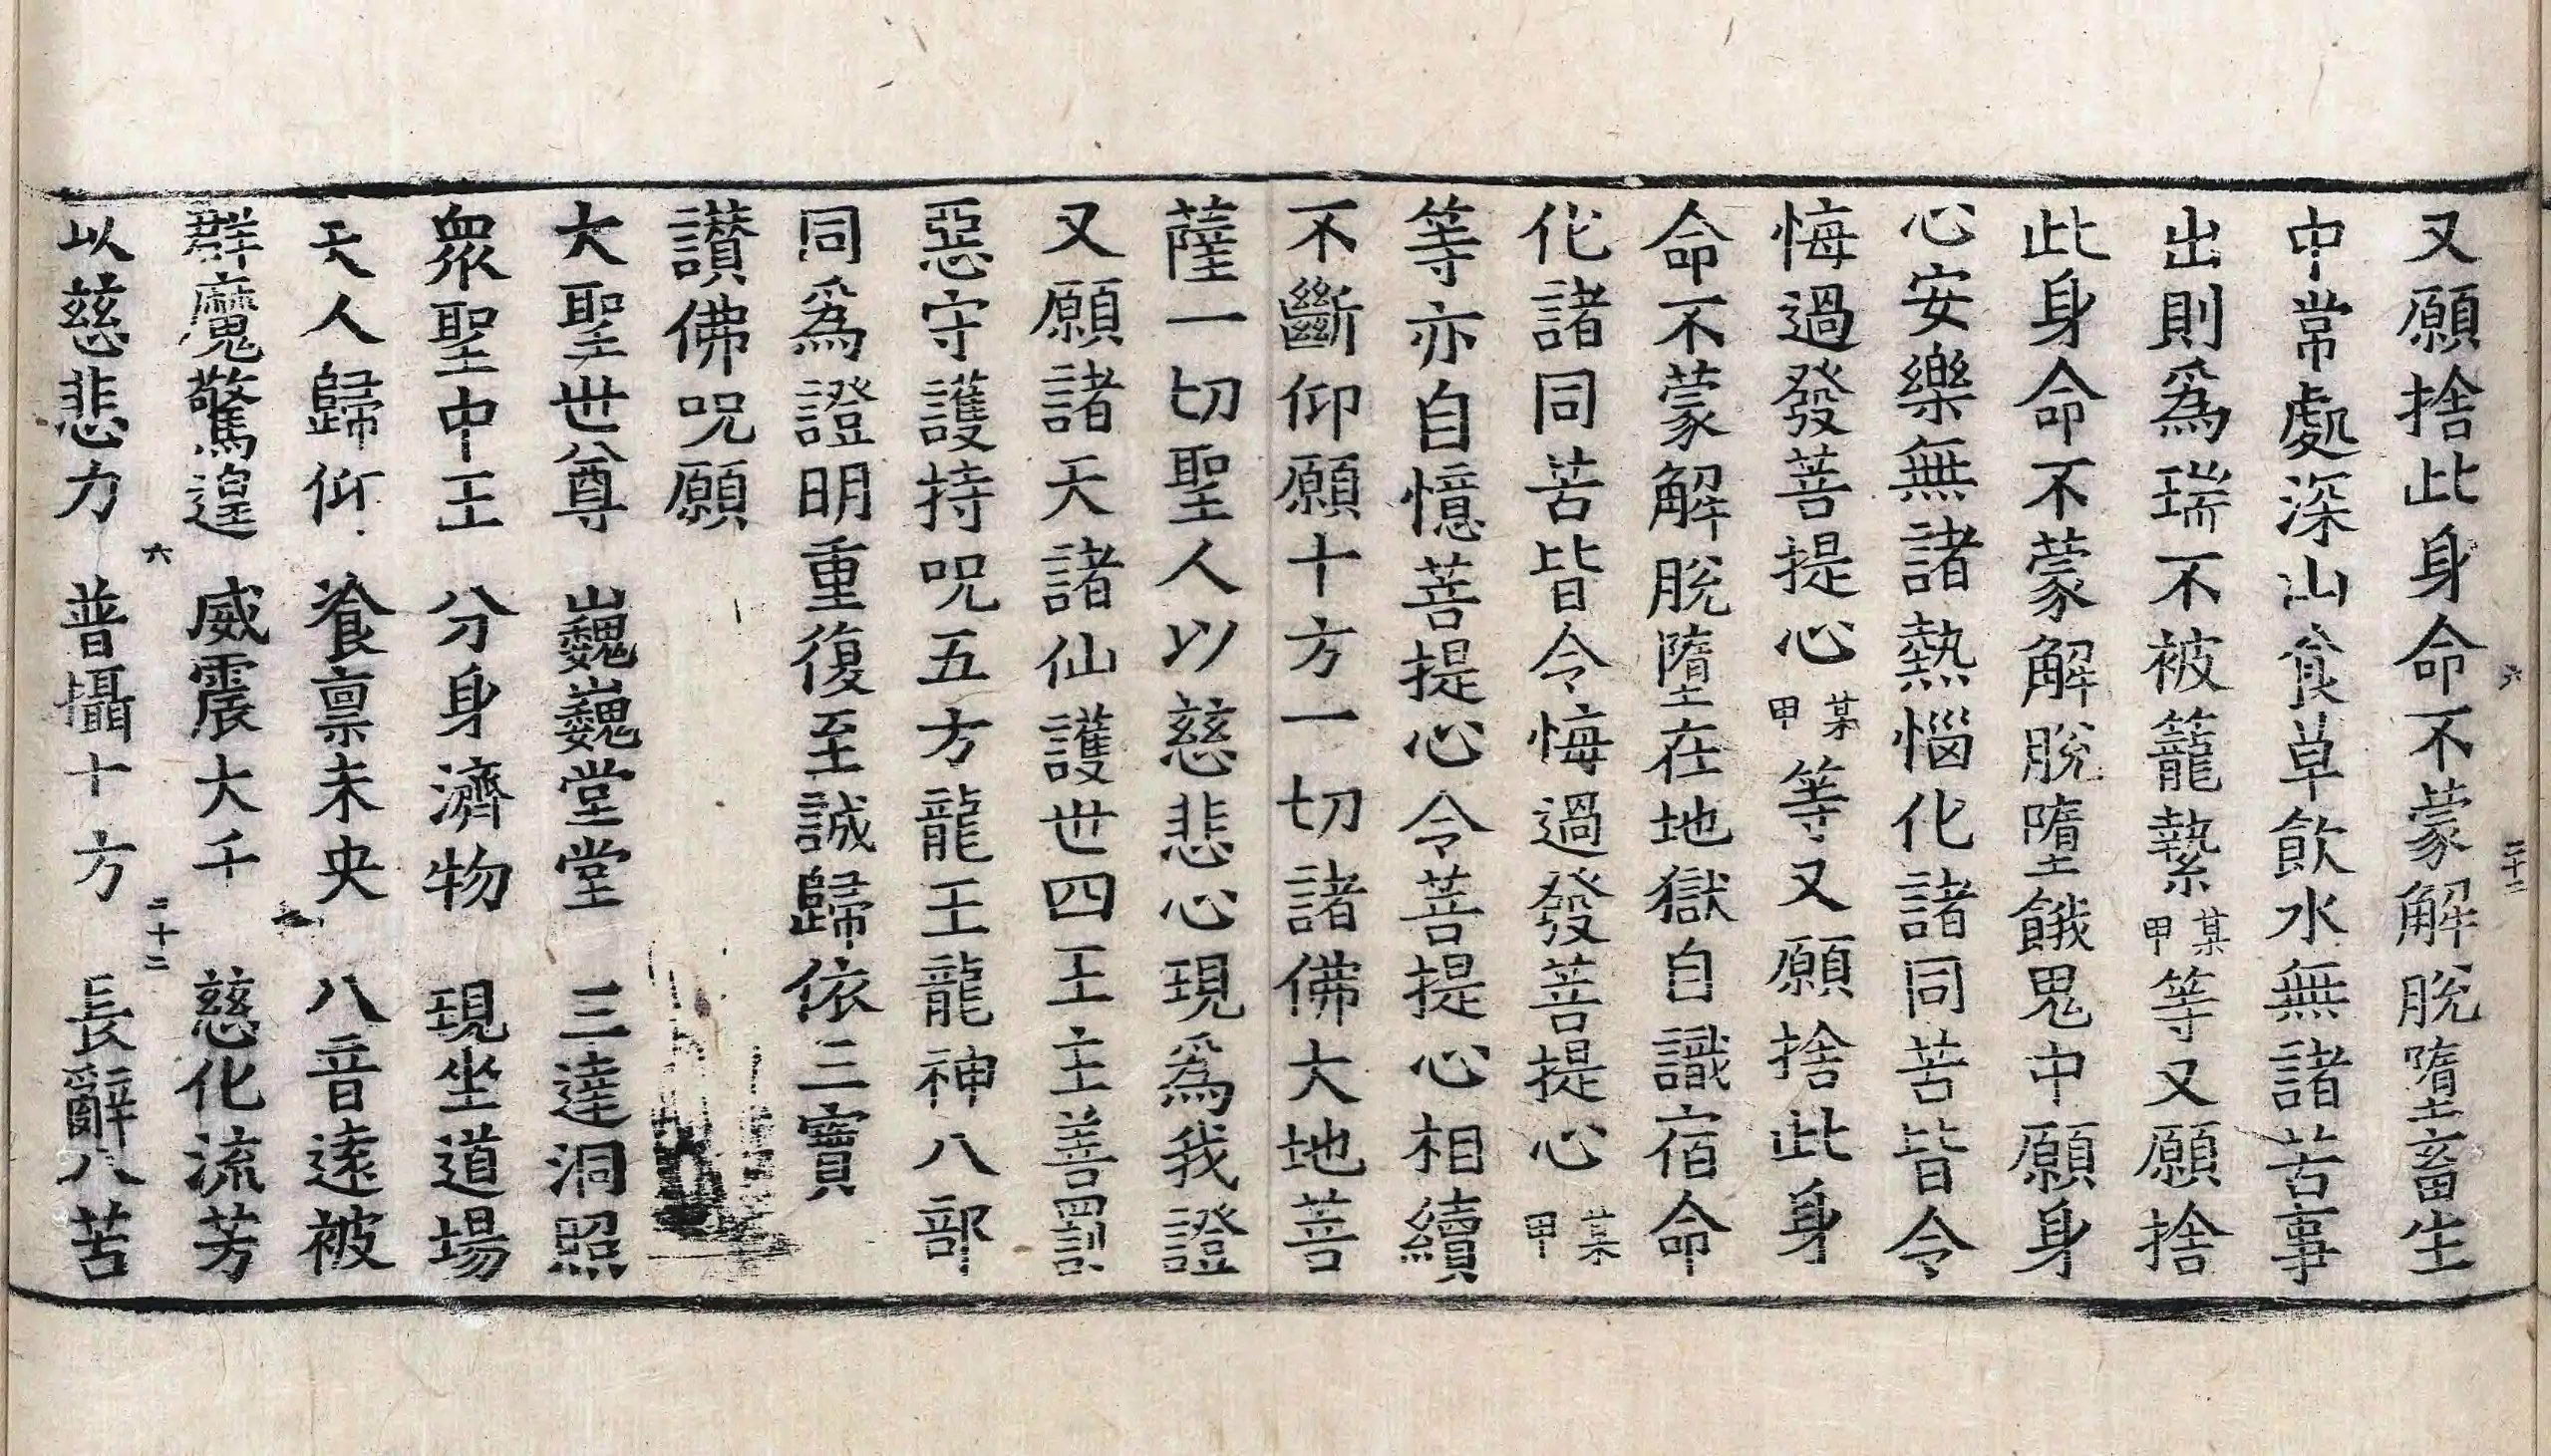 又願捨此身命不蒙解脫墮畜生
中常處深山食草飲水無諸苦事
出則爲瑞不被籠縶某甲等又願捨
此身命不蒙解脫墮餓鬼中願身
心安樂無諸熱惱化諸同苦皆令
悔過發菩提心某甲等又願捨此身
命不蒙解脫墮在地獄自識宿命
化諸同苦皆令悔過發菩提心某甲
等亦自憶菩提心令菩提心相續
不斷仰願十方一切諸佛大地菩
薩一切聖人以慈悲心現爲我證
又願諸天諸仙護世四王主善罰
惡守護持呪五方龍王龍神八部
同爲證明重復至誠歸依三寶
讃佛呪願
大聖世尊 巍巍堂堂 三達洞照
衆聖中王 分身濟物 現坐道場
天人歸仰 飡禀未央 八音遠被
群魔驚遑 威震大千 慈化流芳
六 二十二
以慈悲力 普攝十方 長辭八苦